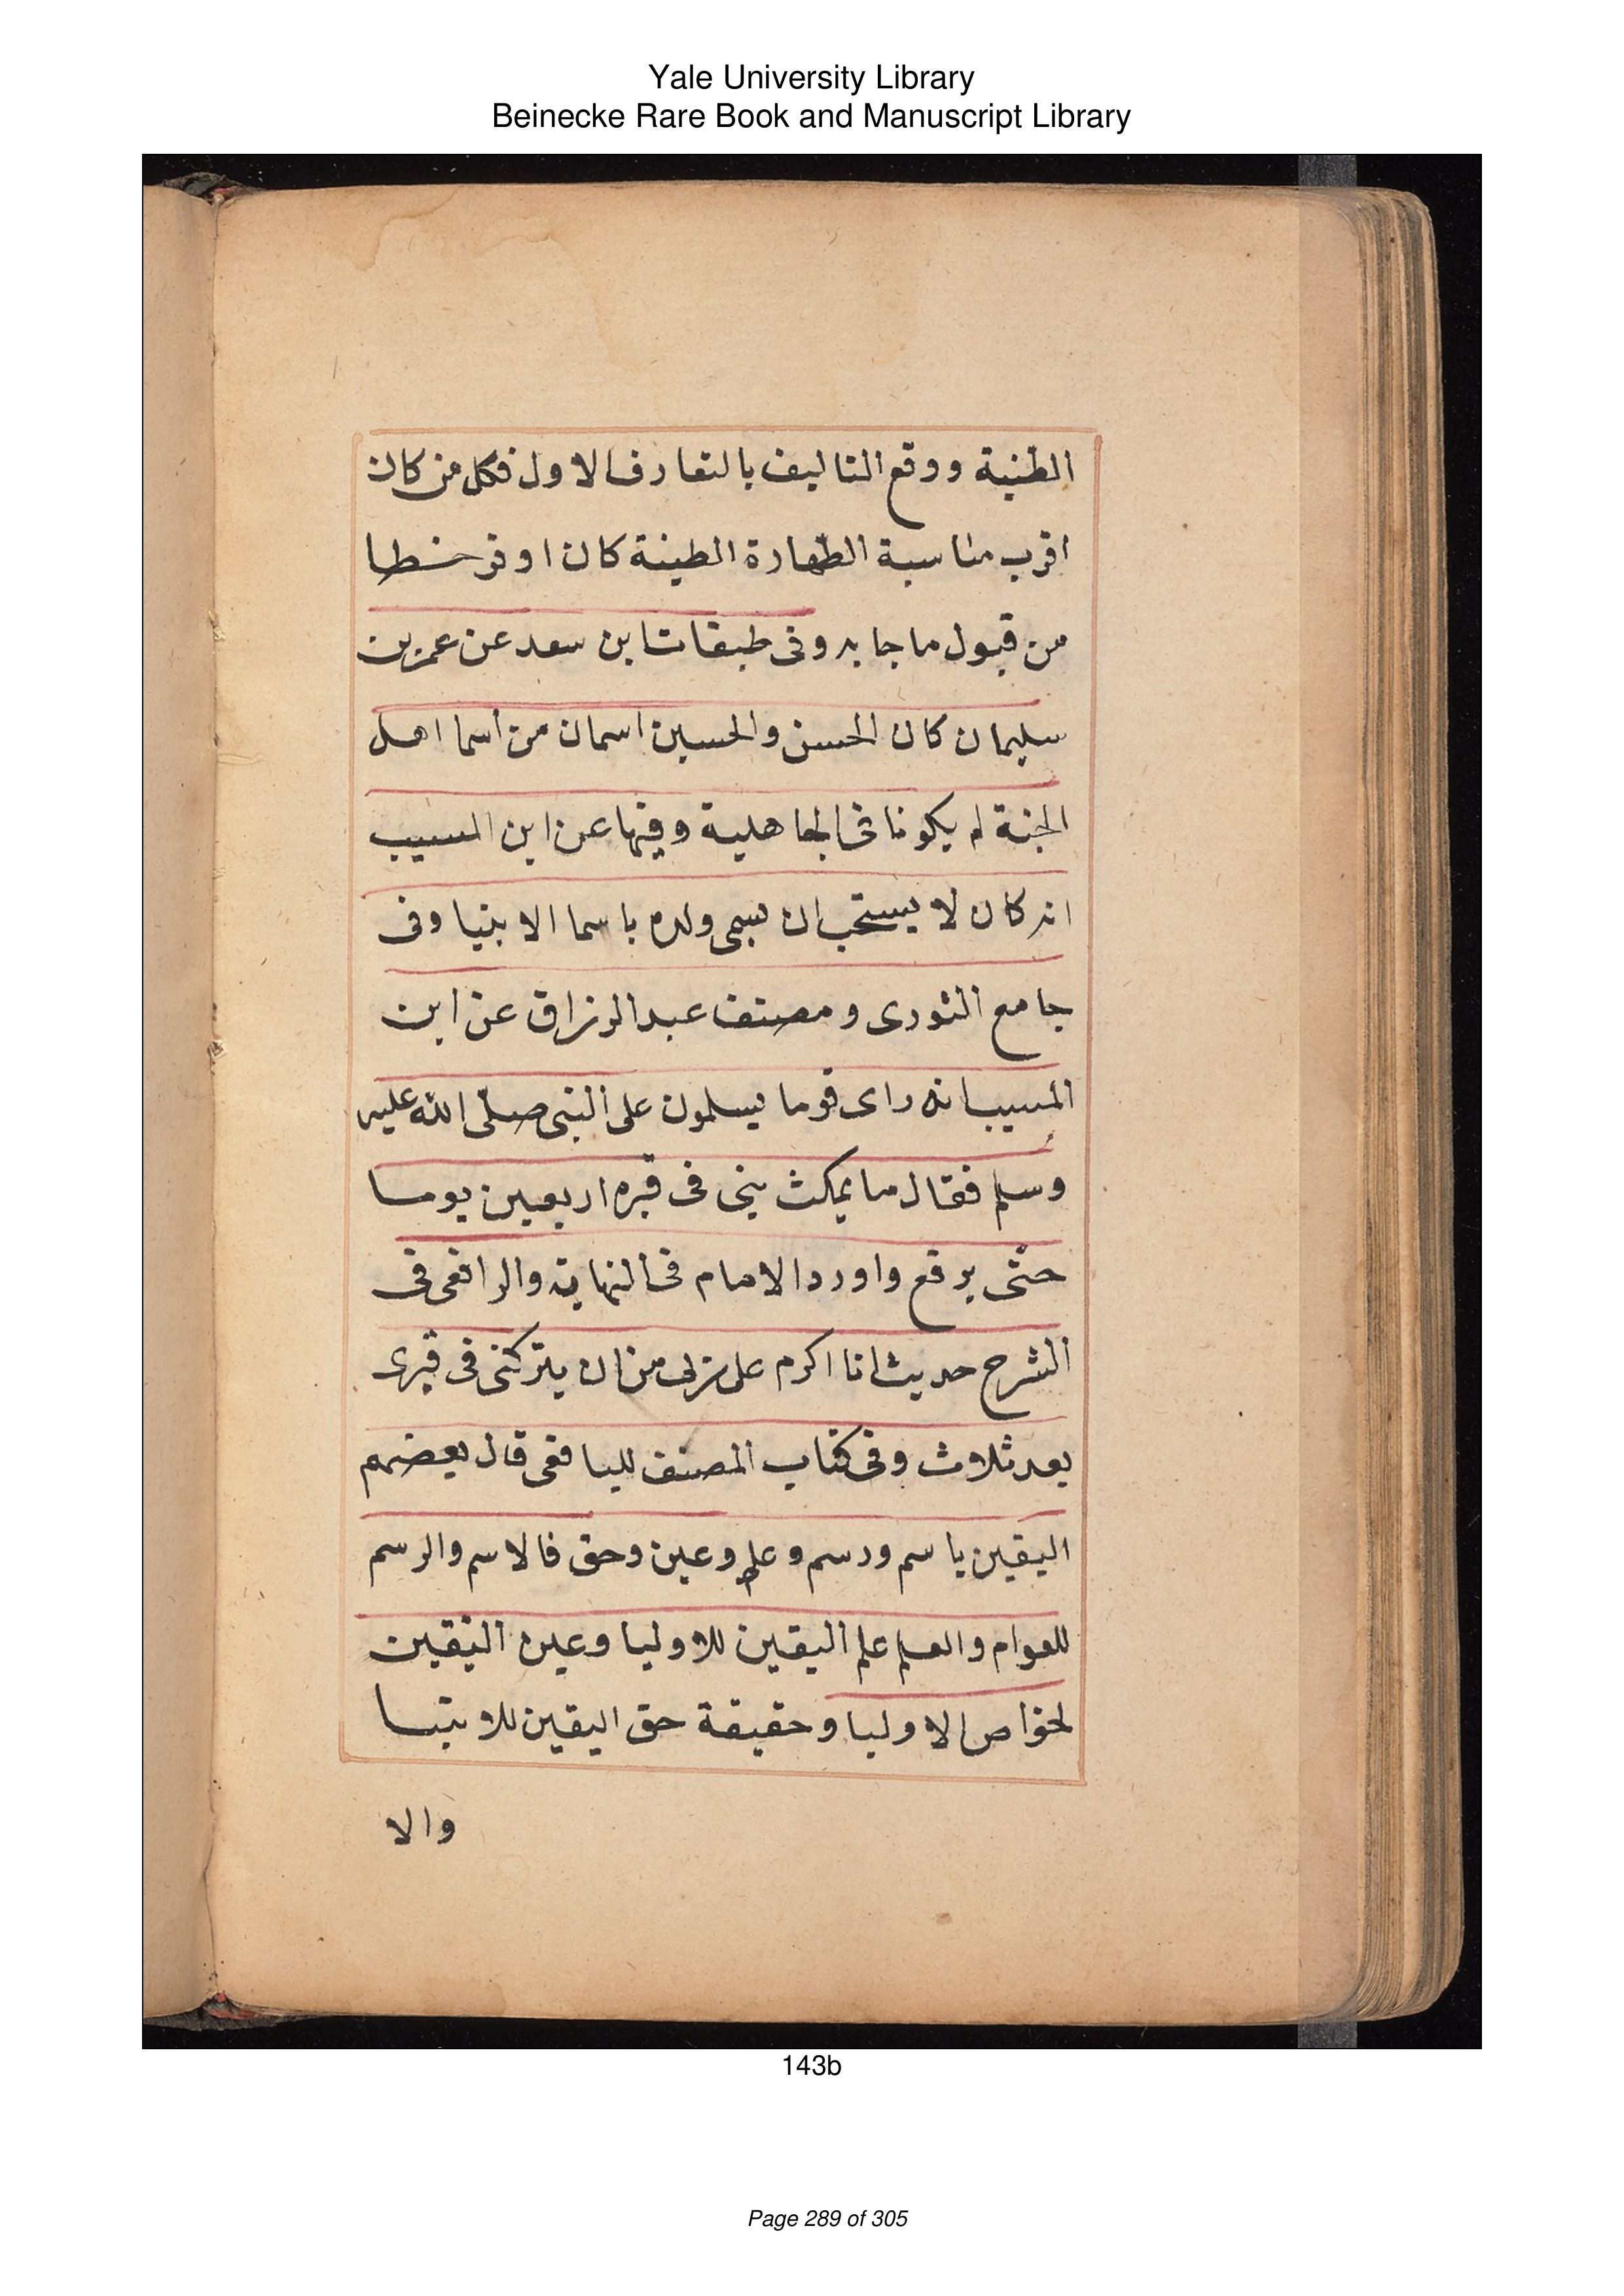 Yale University Library
Beinecke Rare Book and Manuscript Library
الطنية ووقع التاليف بالتعارف الاول فكل من كان
اقرب مناسبة الطهارة الطينة كان اوفر خطا
من قبول ما جا به وفى طبقات ابن سعد عن عمر بن
سليمان كان الحسن والحسين اسمان من أسما اهل
الجنة لم يكونا فى الجاهلية وفيها عن ابن المسيب
انه كان لا يستحب ان يسمى ولده باسما الانبيا وفى
جامع الثورى ومصنف عبد الرزاق عن ابن
المسيب انه راى قوما يسلمون على النبى صلّى الله عليه
وسلم فقال ما يمكث نبى فى قبره اربعين يوما
حتّى يرفع واورد الامام فى النهاية والرافعى فى
الشرح حديث انا اكرم على ربى من ان يتركنى فى قبرى
بعد ثلاث وفى كتاب المصنف لليافعى قال بعضهم
اليقين باسم ورسم وعلم وعين وحق فالاسم والرسم
للعوام والعلم علم اليقين للاوليا وعين اليقين
لخواص الاوليا وحقيقة حق اليقين للانبيا
والا
143b
Page 289 of 305